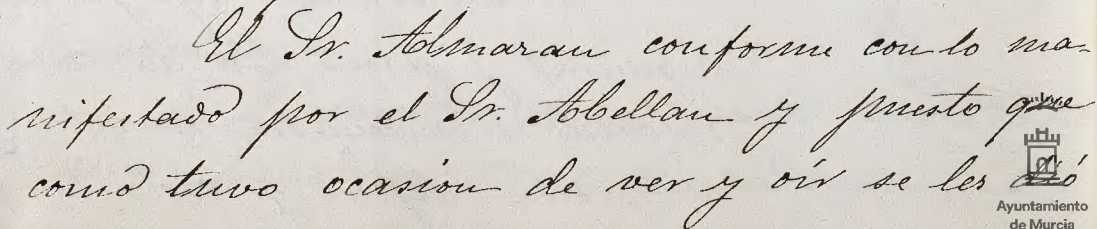 El Sr. Almazan conforme con lo ma-
nifestado por el Sr. Abellan y puesto que
como tuvo ocasion de ver y oir se les dió
Ayuntamiento
de Murcia